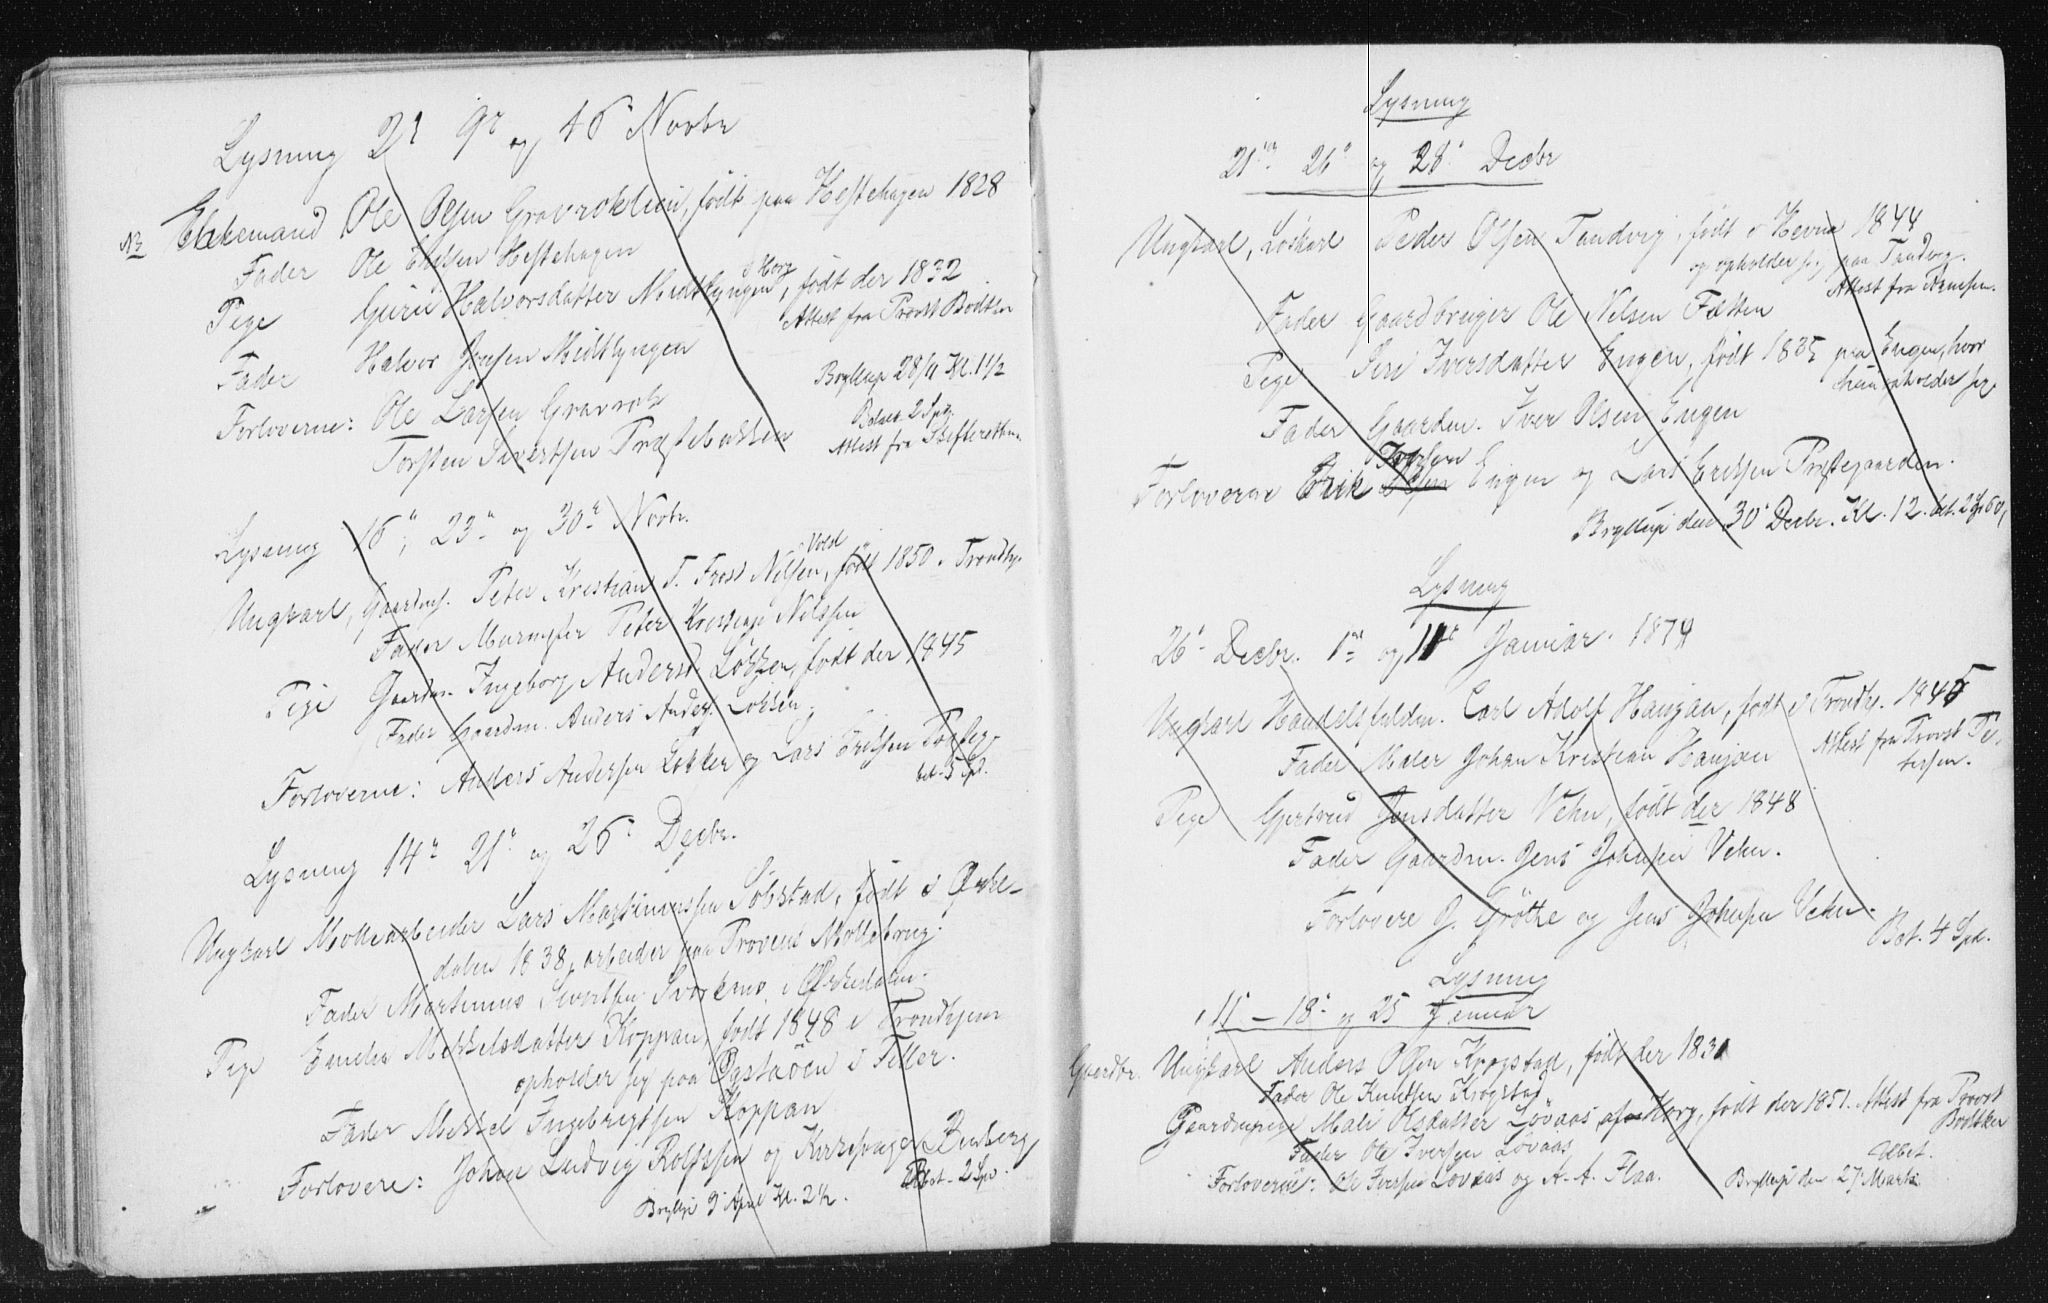 Lysning 2r 9r og 16 Novbr
NB Ekkemand Ole Olsen Gravroklien, født paa Hestehagen 1828
Fader Ole Ericksen Hestehagen
Pige Guru Halvorsdatter Midtlyngen i Horg, født der 1832
Attest fra Provst Bødtker
Fader Halvor Jonsen Midtlyngen
Bryllup 28/11 Kl. 1 1/2
Forloverne: Ole Larsen Gravrok
Betalt 2 Spd.
Torsten Sivertsen Præstebakken
Attest fra Skifteretten
Lysning 16", 23" og 30" Novbr.
Ungkarl, Gaardm. Peter Kristian T. Foss Nilsen, Vold født 1850 i Trondhj.
Fader Murmester Peter Nilssen
Pige Gaardm. Ingeborg Andersd. Løkken, født der 1845
Fader Gaardm. Anders Anders. Løkken.
Forloverne: Anders Andersen Løkken og Lars Eriksen Præsteg.
bet. 5 Spd.
Lysning 14" 21" og 26" Decbr.
Ungkarl Møllearbeider Lars Martinussen Solstad, født i Orke-
dalen 1838, arbeider paa Trovens Møllebrug.
Fader Martinus Sivertsen Svorkmo i Orkedalen.
Pige Emelie Mekkelsdatter Koppan, født 1848 i Trondhjem
opholder sig paa Øystaøen i Teller.
Fader Mekkel Ingebrigtsen Koppan
Forlovere: Johan Ludvig Rolfssen og Kirkesanger Benberg
Bet. 2 Spd.
Bryllup 9 April Kl. 2 1/2.
Lysning
21" 26" og 28" Decbr
Ungkarl, Løskarl Peder Olsen Tandvig, født i Hevne 1844
og opholder sig paa Tandvig.
Attest fra
Fader Gaardbruger Ole Nilsen Fætten
Pige Siri Iversdatter Engen, født 1835 paa Engen, hvor
hun opholder sig
Fader Gaardm. Iver Olsen Engen
Iversen
Forloverne Erik Olsen Engen og Lars Eriksen Præstegaarden.
Bryllup den 30" Decbr. Kl. 12. bet. 2 Sp 60,
Lysning
26" Decbr. 1" og 11" Januar. 1874
Ungkarl Handelsfuldm. Carl Adolf Hanjan, født i Trondhj. 1845
Attest fra Provst Pe-
tersen.
Fader Maler Johan Kristian Hanjan
Pige Gjertrud Jensdatter Vehn, født der 1848
Fader Gaardm. Jens Johnsen Vehn.
Forlovere J. Grötte og Jens Johnsen Vehn.
Bet. 4 Spd.
Lysning
11" - 18" og 25 Januar
Gaardbr. Ungkarl Anders Olsen Krogstad, født der 1831
Fader Ole Knudtsen Krogstad
Gaardmpige Mali Olsdatter Løvaas af Horg, født der 1851. Attest fra Provst
Bødtker
Fader Ole Iversen Løvaas
Ubet.
Forloverne: Ole Iversen Løvaas og A. A. Flaa.
Bryllup den 27 Marts